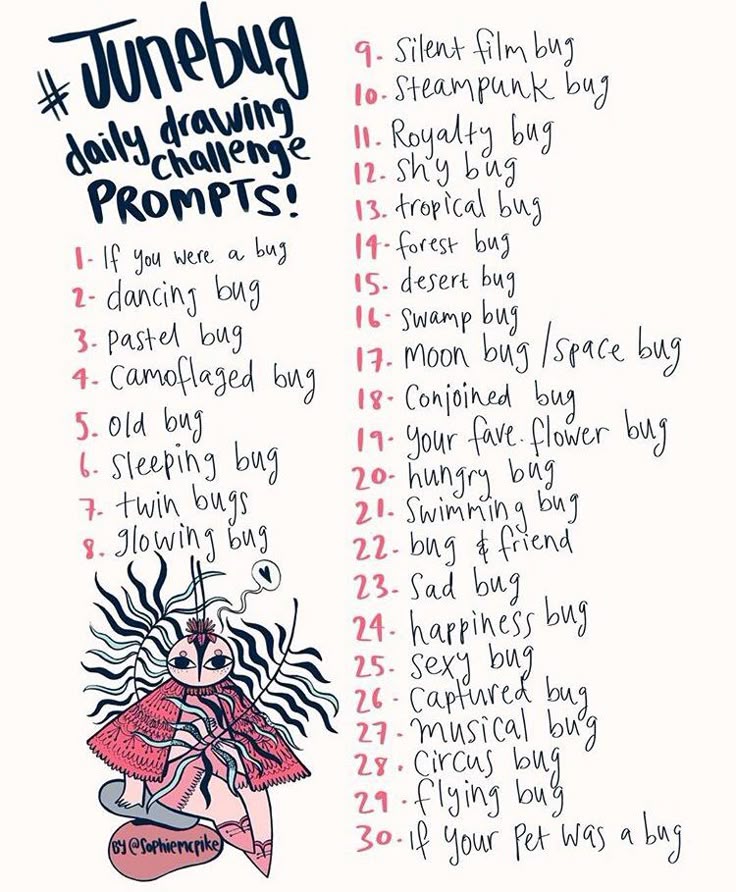 #Junebug
daily drawing
challenge
PROMPTS!
1- If you were a bug
2- dancing bug
3- pastel bug
4- Camoflaged bug
5. old bug
6- sleeping bug
7- twin bugs
8. glowing bug
9. silent film bug
10. Steampunk bug
11. Royalty bug
12. shy bug
13. tropical bug
14- forest bug
15. desert bug
16- swamp bug
17. Moon bug /space bug
18- Conjoined bug
19- your fave. flower bug
20- hungry bug
21. Swimming bug
22- bug & friend
23- Sad bug
24- happiness bug
25- sexy bug
26- captured bug
27- musical bug
28. circus bug
29. flying bug
30. if your pet was a bug
BY @Sophiemcpike